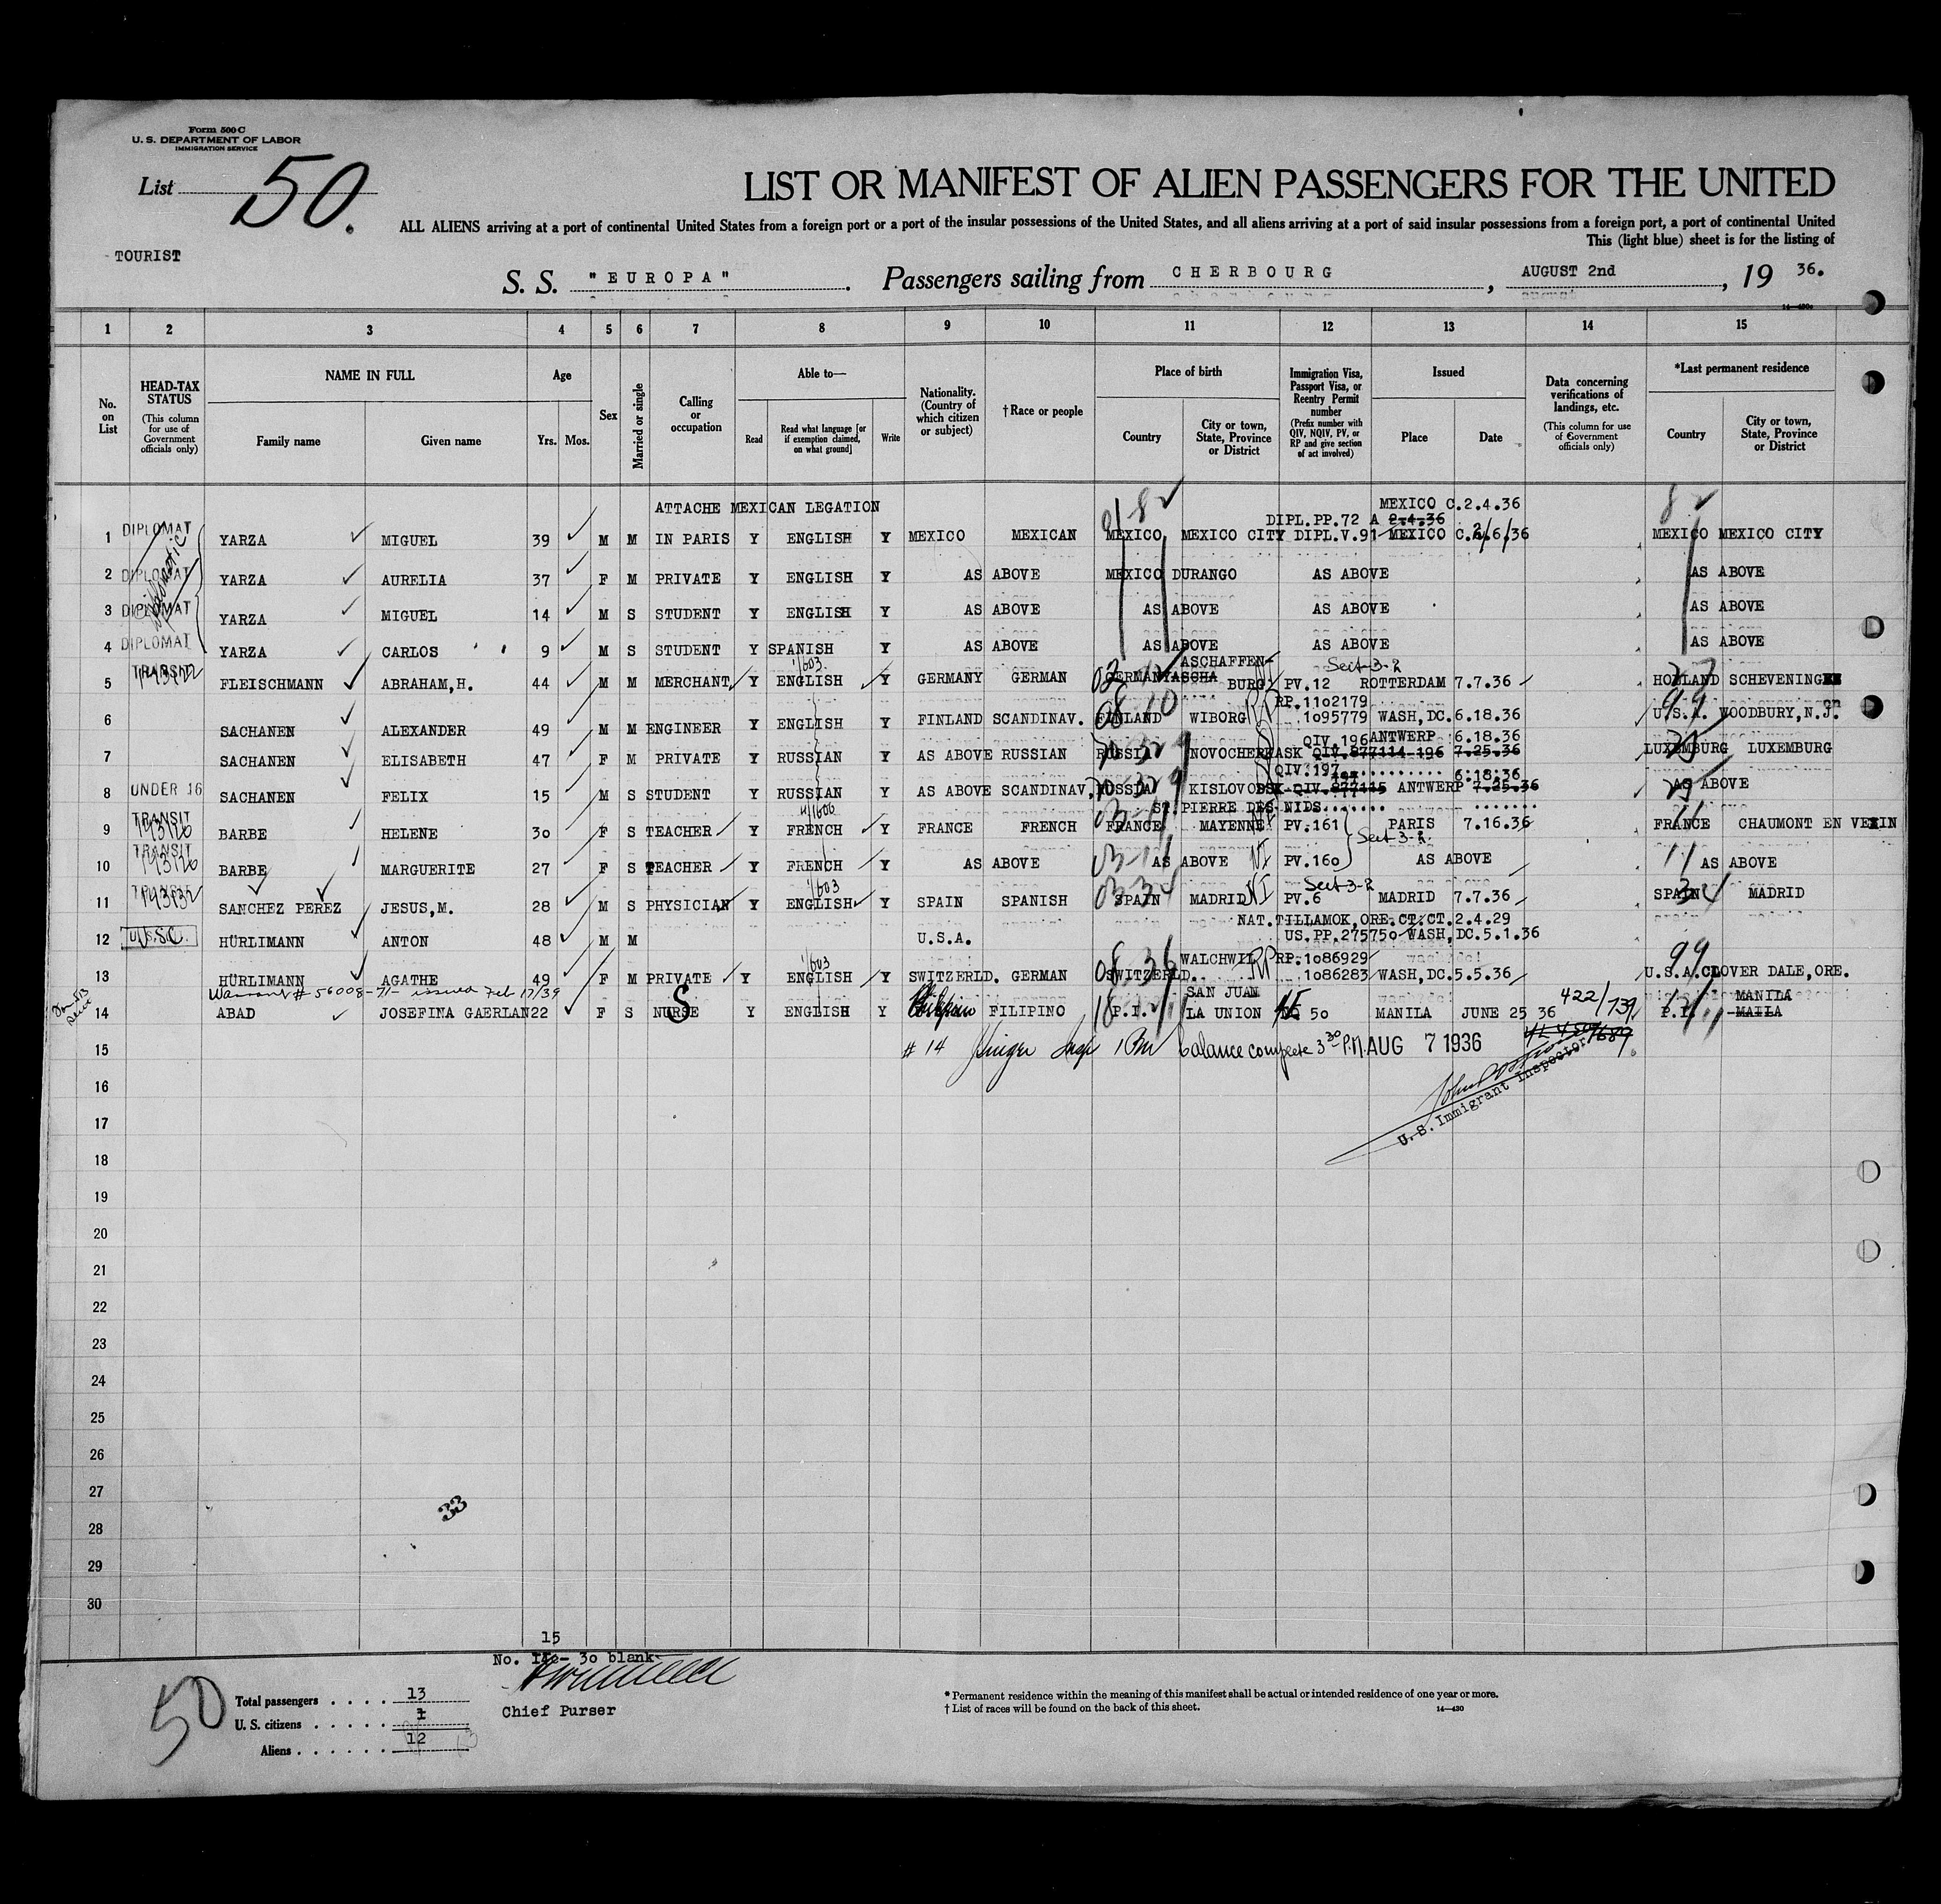 Form 500-C
U. S. DEPARTMENT OF LABOR
IMMIGRATION SERVICE
List 50.
LIST OR MANIFEST OF ALIEN PASSENGERS FOR THE UNITED
ALL ALIENS arriving at a port of continental United States from a foreign port or a port of the insular possessions of the United States, and all aliens arriving at a port of said insular possessions from a foreign port, a port of continental United
This (light blue) sheet is for the listing of
TOURIST
S. S. "EUROPA". Passengers sailing from CHERBOURG, AUGUST 2nd, 19 36.
14—430
1 2 3 4 5 6 7 8 9 10 11 12 13 14 15
No. on List
HEAD-TAX STATUS (This column for use of Government officials only)
NAME IN FULL Family name Given name
Age Yrs. Mos.
Sex
Married or single
Calling or occupation
Able to— Read Read what language [or if exemption claimed, on what ground] Write
Nationality. (Country of which citizen or subject)
† Race or people
Place of birth Country City or town, State, Province or District
Immigration Visa, Passport Visa, or Reentry Permit number (Prefix number with QIV, NQIV, PV, or RP and give section of act involved)
Issued Place Date
Data concerning verifications of landings, etc. (This column for use of Government officials only)
*Last permanent residence Country City or town, State, Province or District
ATTACHE MEXICAN LEGATION MEXICO C.2.4.36
DIPL.PP.72 A 2.4.36
1 DIPLOMAT YARZA MIGUEL 39 M M IN PARIS Y ENGLISH Y MEXICO MEXICAN MEXICO MEXICO CITY DIPL.V.91 MEXICO C. 2/6/36 MEXICO MEXICO CITY
2 DIPLOMAT YARZA AURELIA 37 F M PRIVATE Y ENGLISH Y AS ABOVE MEXICO DURANGO AS ABOVE AS ABOVE
3 DIPLOMAT YARZA MIGUEL 14 M S STUDENT Y ENGLISH Y AS ABOVE AS ABOVE AS ABOVE AS ABOVE
4 DIPLOMAT YARZA CARLOS 9 M S STUDENT Y SPANISH Y AS ABOVE AS ABOVE AS ABOVE AS ABOVE
TRANSIT 1/603 ASCHAFFEN- Sect-3-2
5 FLEISCHMANN ABRAHAM,H. 44 M M MERCHANT Y ENGLISH Y GERMANY GERMAN GERMANY ASCHA BURG PV.12 ROTTERDAM 7.7.36 HOLLAND SCHEVENING
RP.1102179
6 SACHANEN ALEXANDER 49 M M ENGINEER Y ENGLISH Y FINLAND SCANDINAV. FINLAND WIBORG 1095779 WASH,DC.6.18.36 U.S.A. WOODBURY,N.J.
QIV.196 ANTWERP 6.18.36
7 SACHANEN ELISABETH 47 F M PRIVATE Y RUSSIAN Y AS ABOVE RUSSIAN RUSSIA NOVOCHERKASK QIV.877114 196 7.25.36 LUXEMBURG LUXEMBURG
QIV.197 6.18.36
8 UNDER 16 SACHANEN FELIX 15 M S STUDENT Y RUSSIAN Y AS ABOVE SCANDINAV. RUSSIA KISLOVODSK QIV.877115 ANTWERP 7.25.36 AS ABOVE
TRANSIT ST.PIERRE DES NIDS
9 BARBE HELENE 30 F S TEACHER Y FRENCH Y FRANCE FRENCH FRANCE MAYENNE PV.161 PARIS 7.16.36 FRANCE CHAUMONT EN VEXIN
TRANSIT Sect 3-2.
10 BARBE MARGUERITE 27 F S TEACHER Y FRENCH Y AS ABOVE AS ABOVE PV.160 AS ABOVE AS ABOVE
TRANSIT 1/603 Sect 3-2
11 SANCHEZ PEREZ JESUS,M. 28 M S PHYSICIAN Y ENGLISH Y SPAIN SPANISH SPAIN MADRID PV.6 MADRID 7.7.36 SPAIN MADRID
NAT.TILLAMOK,ORE.CT.CT.2.4.29
12 U.S.C. HÜRLIMANN ANTON 48 M M U.S.A. US.PP.275750 WASH,DC.5.1.36
1/603 WALCHWIL RP.1086929
13 HÜRLIMANN AGATHE 49 F M PRIVATE Y ENGLISH Y SWITZERLD. GERMAN SWITZERLD. 1086283 WASH,DC.5.5.36 U.S.A. CLOVER DALE,ORE.
Warrant # 56008-71- issued Feb 17/39 SAN JUAN 422/739 MANILA
14 ABAD JOSEFINA GAERLAN 22 F S NURSE Y ENGLISH Y Philippine FILIPINO P.I. LA UNION 50 MANILA JUNE 25 36 P.I. MAILA
15 # 14 Insp 1 PM balance complete 3 30 P.M. AUG 7 1936
U. S. Immigrant Inspector
16
17
18
19
20
21
22
23
24
25
26
27
33
28
29
30
15
No. 14 - 30 blank
Chief Purser
50
Total passengers . . . . 13
U. S. citizens . . . . . 1
Aliens . . . . . . 12
* Permanent residence within the meaning of this manifest shall be actual or intended residence of one year or more.
† List of races will be found on the back of this sheet.
14—430